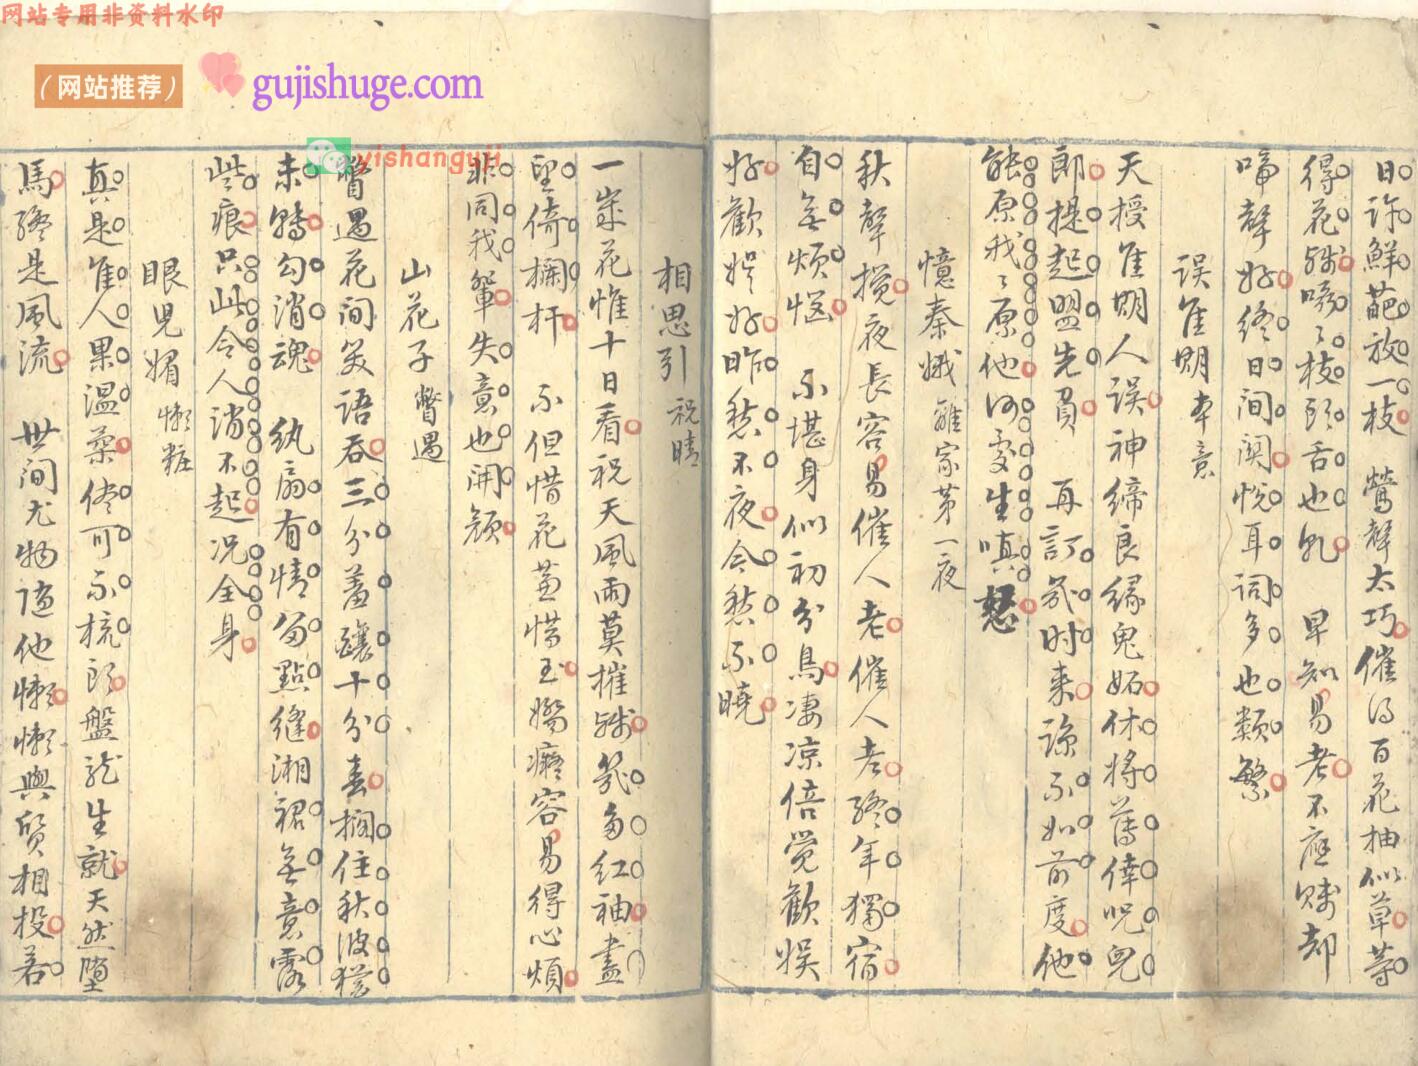 网站专用非资料水印
（网站推荐）
gujishuge.com
yishanguji
日許鮮葩放一枝 鶯聲太巧催得百花抽似草等
得花殘嚦〻枝頭舌也乱 早知易老不應賤却
啼聲好終日间関悦耳词多也類繁
误隹期 本意
天授隹期人误神缔良缘鬼妬休將薄倖呪兒
郎提起盟先負 再訂幾时来諒不如前度他
能原我〻原他何處生嗔怒
憶秦娥 離家第一夜
秋聲攪夜長容易催人老催人老終年獨宿
自無煩惱 不堪身似初分鳥凄凉倍觉歡娱
好歡娱好昨愁不夜今愁不曉
相思引 祝晴
一歲花惟十日看祝天風雨莫摧殘幾多红袖盡
望倚欄杆 不但惜花兼惜玉嬌癡容易得心煩
非同我輩失意也開顔
山花子 瞥遇
瞥遇花间笑语吞三分羞釀十分春擱住秋波猶
未轉勾消魂 纨扇有情多點缝湘裙無意露
些痕只此令人消不起况全身
眼児媚 懒粧
真是隹人果温柔倦可不梳頭盤龙生就天然墮
馬終是風流 世间尤物随他懒懒與質相投若